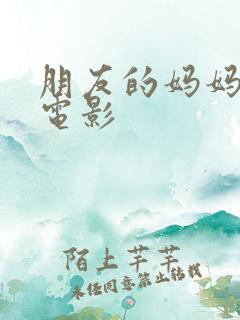 朋友的妈妈
电影
陌上芊芊
未经同意禁止转载